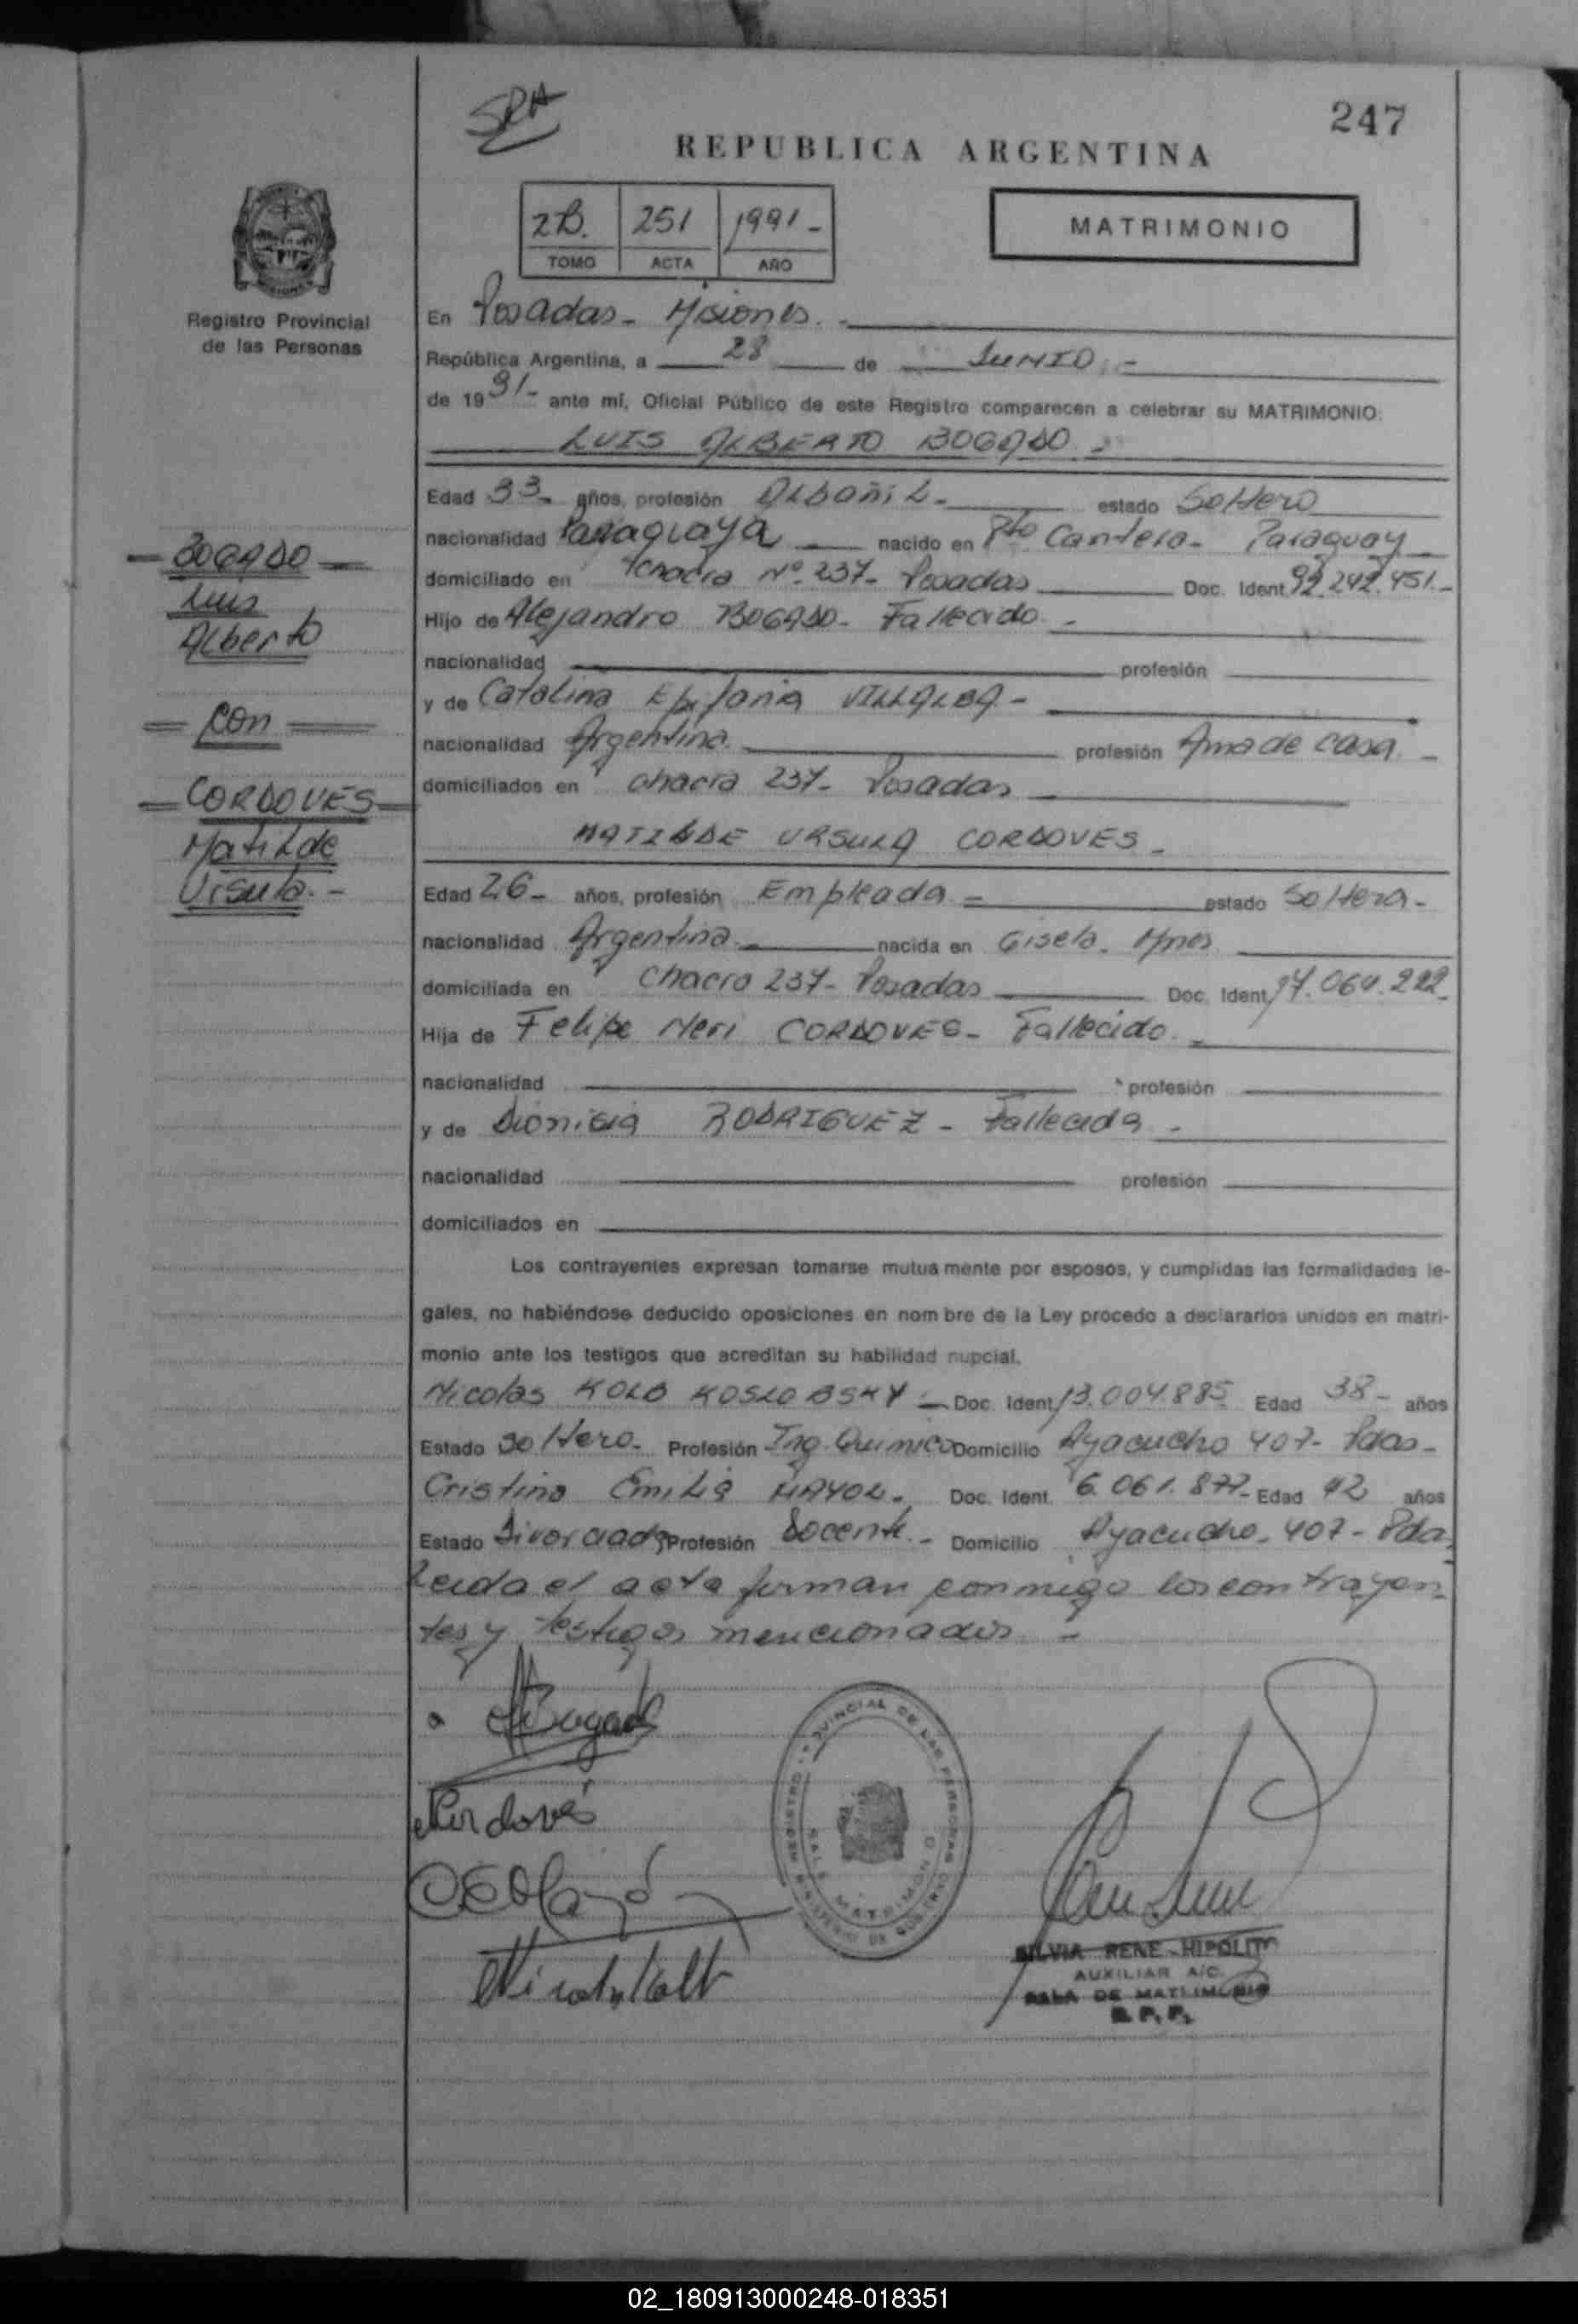 SRA
247
REPUBLICA ARGENTINA
2B. 251 1991-
TOMO ACTA AÑO
MATRIMONIO
Registro Provincial
de las Personas
En Posadas - Misiones. -
República Argentina, a 28 de JUNIO. -
de 19 91- ante mí, Oficial Público de este Registro comparecen a celebrar su MATRIMONIO:
LUIS ALBERTO BOGADO. -
Edad 33- años, profesión Albañil- estado Soltero
nacionalidad Paraguaya nacido en Pto Cantera- Paraguay
domiciliado en Chacra Nº 237- Posadas Doc. Ident. 92.242.451.-
Hijo de Alejandro BOGADO- Fallecido -
nacionalidad profesión
y de Catalina Epifania VILLALBA -
nacionalidad Argentina. profesión Ama de casa. -
domiciliados en chacra 237- Posadas
MATILDE URSULA CORDOVES -
Edad 26- años, profesión Empleada - estado Soltera-
nacionalidad Argentina nacida en Gisela - Mnes
domiciliada en Chacra 237- Posadas Doc. Ident. 17.060.222-
Hija de Felipe Neri CORDOVES- Fallecido. -
nacionalidad profesión
y de Dionisia RODRIGUEZ - Fallecida -
nacionalidad profesión
domiciliados en
Los contrayentes expresan tomarse mutuamente por esposos, y cumplidas las formalidades le-
gales, no habiéndose deducido oposiciones en nombre de la Ley procedo a declararlos unidos en matri-
monio ante los testigos que acreditan su habilidad nupcial.
Nicolas KOLB KOSLOBSKY - Doc. Ident. 13.004.885 Edad 38- años
Estado Soltero- Profesión Ing. Quimico Domicilio Ayacucho 407- Pdas-
Cristina Emilia MAYOL. Doc. Ident. 6.061.877- Edad 42 años
Estado Divorciada Profesión Docente.- Domicilio Ayacucho- 407- Pda
Leida el acta firman conmigo los contrayen-
tes y testigos mencionados -
BOGADO
Luis
Alberto
= con =
CORDOVES
Matilde
Ursula. -
REGISTRO PROVINCIAL DE LAS PERSONAS
MINISTERIO DE GOBIERNO
SALA MATRIMONIO
SILVIA RENE HIPOLITO
AUXILIAR A/C.
SALA DE MATRIMONIO
R. P. P.
02_180913000248-018351